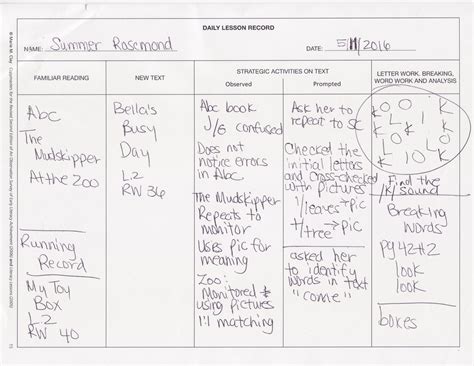 DAILY LESSON RECORD
NAME: Summer Rosemond
DATE: 5/11/2016
FAMILIAR READING
Abc
The
Mudskipper
At the zoo
Running
Record
My Toy
Box
L.2
RW 40
NEW TEXT
Bella's
Busy
Day
L.2
RW 36
STRATEGIC ACTIVITIES ON TEXT
Observed
Abc book
J/G confused
Does not
notice errors
in Abc
The Mudskipper
Repeats to
monitor
Uses pic for
meaning
Zoo:
Monitored &
using pictures
1:1 matching
Prompted
Ask her to
repeat to SC
Checked the
initial letters
and cross-checked
with pictures
l/leaves→pic
t/tree→pic
asked her
to identify
words in text
"come"
LETTER WORK, BREAKING,
WORD WORK AND ANALYSIS
Find the
/k/ sound
Breaking
words
pg 42 #2
look
look
boxes